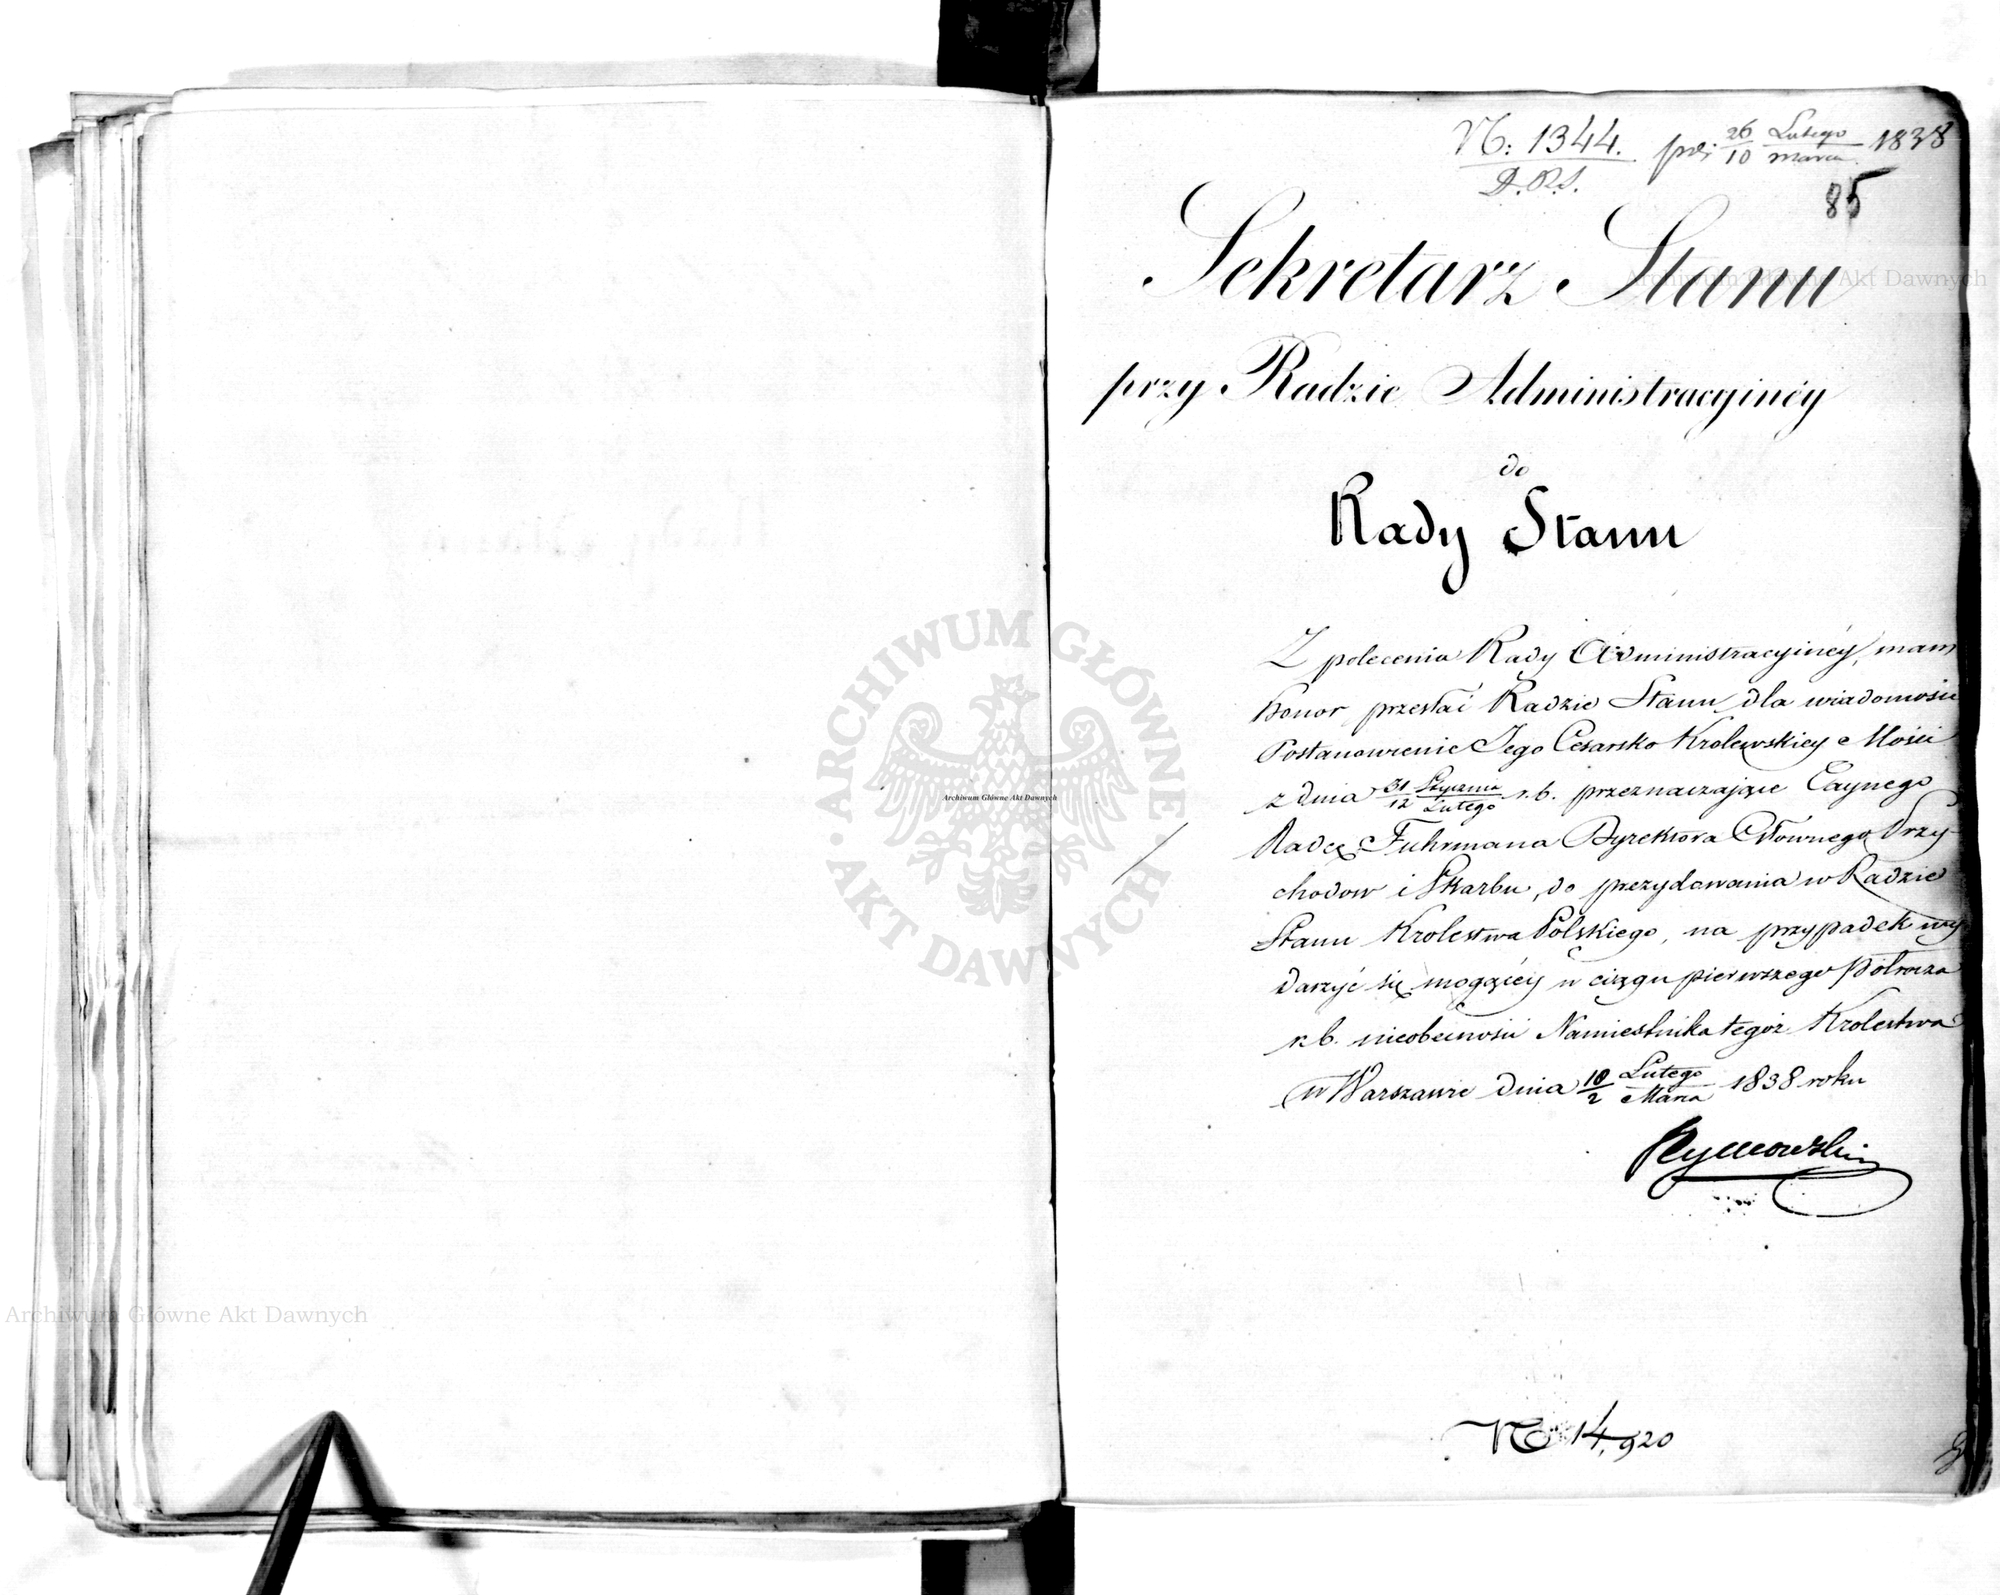 N: 1344. 26 Lutego 1838
D.R.S. 10 marca
85
Sekretarz Stanu
przy Radzie Administracyinéy
do
Rady Stanu
Z polecenia Rady Administracyinéy, mam
honor przesłać Radzie Stanu dla wiadomości
Postanowienie Jego Cesarsko Krolewskiey Mości
z dnia 31/12 Stycznia/Lutego r.b. przeznaczające Taynego
Radcę Fuhrmana Dyrektora Głownego Przy-
chodow i Skarbu, do prezydowania w Radzie
Stanu Krolestwa Polskiego, na przypadek wy-
darzyć się mogącéy w ciągu pierwszego półrocza
r.b. nieobecności Namiestnika tegoż Krolestwa
w Warszawie dnia 18/2 Lutego/Marca 1838 roku
Rymowski
No 14,920
ARCHIWUM GŁÓWNE AKT DAWNYCH
Archiwum Główne Akt Dawnych
Archiwum Główne Akt Dawnych
Archiwum Główne Akt Dawnych